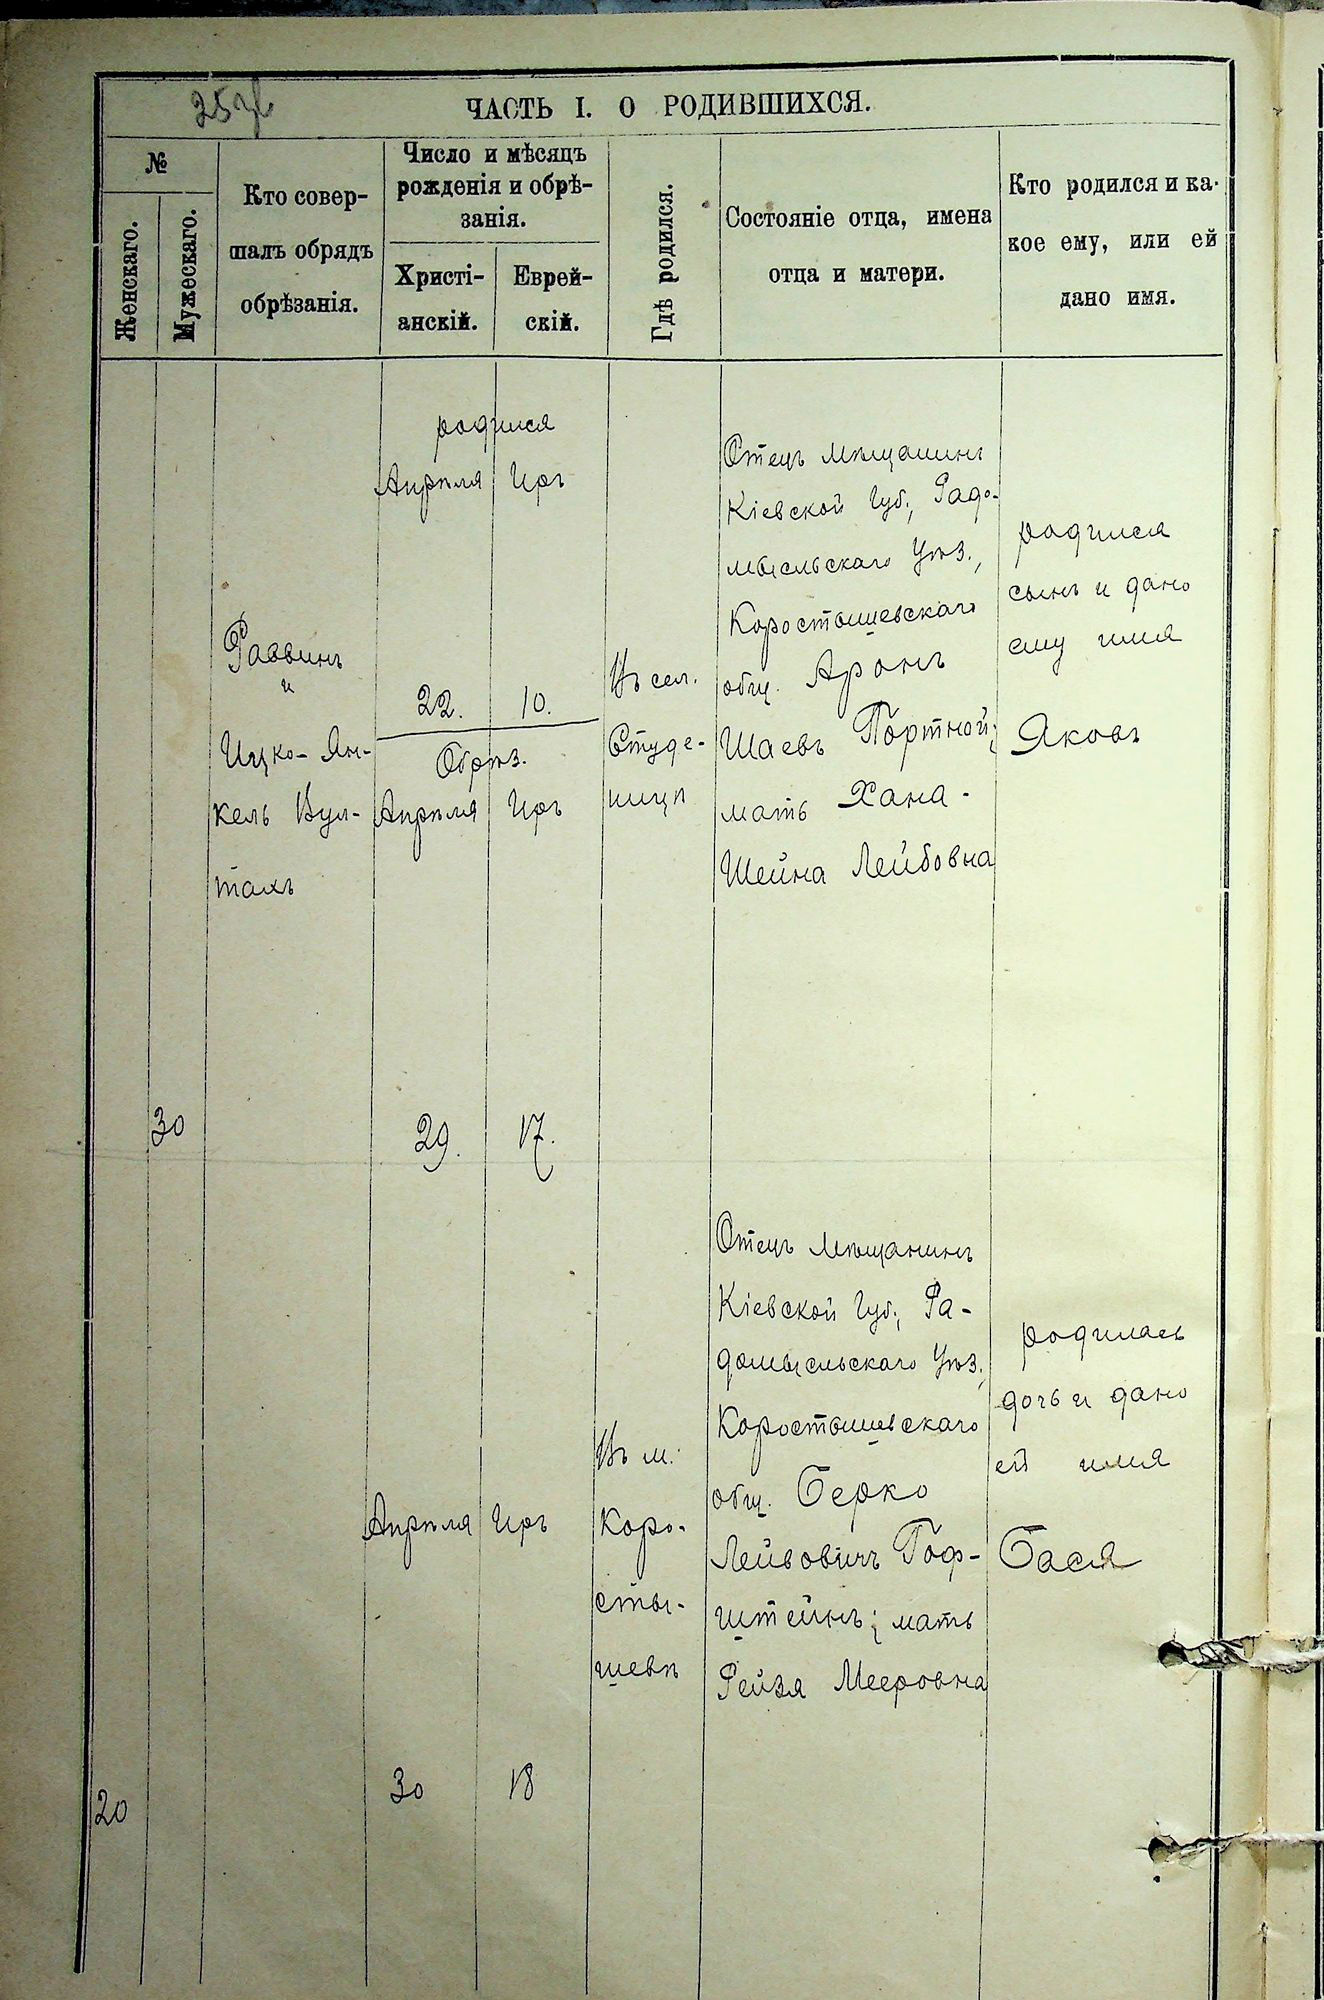 ЧАСТЬ I. О РОДИВШИХСЯ.
№
Женскаго.
Мужескаго.
Кто совер-
шалъ обрядъ
обрѣзанія.
Число и мѣсяцъ
рожденія и обрѣ-
занія.
Христі-
анскій.
Еврей-
скій.
Гдѣ родился.
Состояніе отца, имена
отца и матери.
Кто родился и ка-
кое ему, или ей
дано имя.
30
Раввинъ
и
Ицко-Ян-
кель Вул-
тахъ
родился
Апрѣля Иръ
22. 10.
Обрѣз.
Апрѣля Иръ
29. 17.
Въ сел.
Студе-
ницѣ
Отецъ мѣщанинъ
Кіевской Губ., Радо-
мысльскаго Уѣз.,
Коростышевскаго
общ. Аронъ
Шаевъ Портной;
мать Хана-
Шейна Лейбовна
родился
сынъ и дано
ему имя
Яковъ
20
Апрѣля Иръ
30 18
Въ м.
Коро-
сты-
шевѣ
Отецъ мѣщанинъ
Кіевской Губ., Ра-
домысльскаго Уѣз.,
Коростышевскаго
общ. Берко
Лейбовичъ Гоф-
штейнъ; мать
Рейзя Мееровна
родилась
дочь и дано
ей имя
Бася